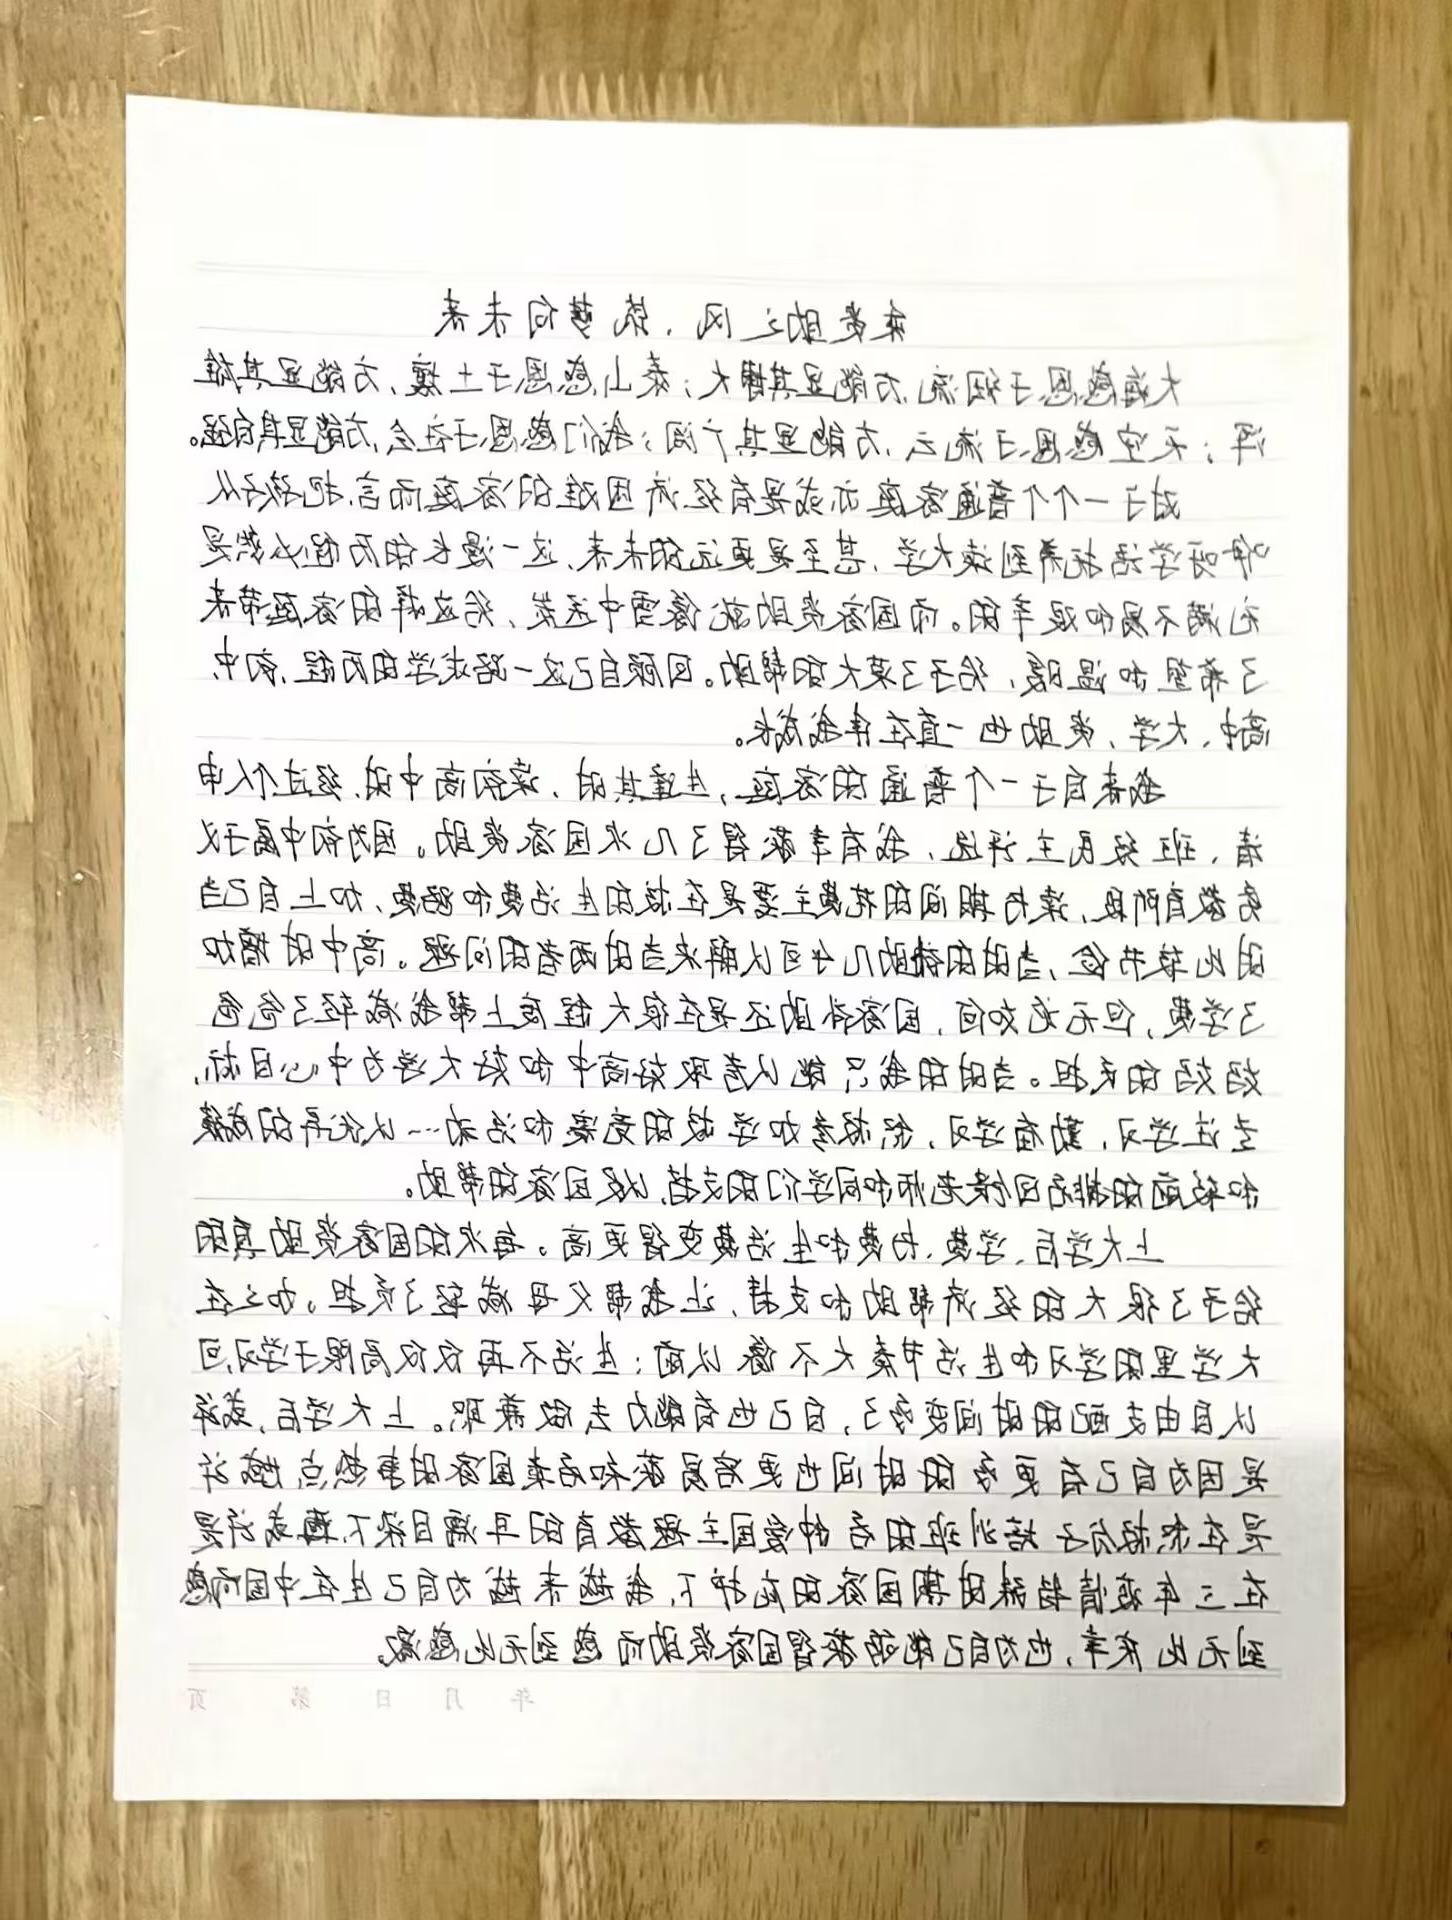 乘资助之风、筑梦向未来
大海感恩于细流,方能显其博大;泰山感恩于土壤、方能显其雄
浑;天空感恩于流云,方能显其广阔;我们感恩于社会,方能显其自强。
对于一个个普通家庭亦或是有经济困难的家庭而言,把孩子从
咿呀学语抚养到读大学、甚至是更远的未来、这一漫长的历程必然是
充满不易和艰辛的。而国家资助就像雪中送炭、给这样的家庭带来
了希望和温暖,给予了莫大的帮助。回顾自己这一路求学的历程,初中、
高中、大学、资助也一直在伴我成长。
我来自于一个普通的家庭,生逢其时、读初高中时,经过个人申
请,班级民主评选、我有幸获得了几次国家资助。因为初中属于义
务教育阶段、读书期间的花费主要是在校的生活费和路费、加上自己当
时比较节俭,当时的补助几乎可以解决当时两者的问题。高中时增加
了学费,但无论如何,国家补助还是在很大程度上帮我减轻了爸爸
妈妈的负担。当时的我只能以考取好高中和好大学为中心目标,
专注学习,勤奋学习,积极参加学校的竞赛和活动……以优异的成绩
和较前的排名回馈老师和同学们的支持,以及国家的帮助。
上大学后、学费、书费和生活费变得更高。每次的国家资助真的
给予了很大的经济帮助和支持,让我帮父母减轻了负担。加之在
大学里的学习和生活节奏大不像以前;生活不再仅仅局限于学习,可
以自由支配的时间变多了,自己也有能力去做兼职。上大学后,或许
是因为自己有更多的时间也更容易获和后来国家时事热点,或许
是在积极分子培训班的各种爱国主题教育的耳濡目染下,或许是
在三年疫情特殊时期国家的庇护下,我越来越为自己生在中国而感
到无比庆幸,也为自己能够获得国家资助而感到无比感激。
年 月 日 第 页